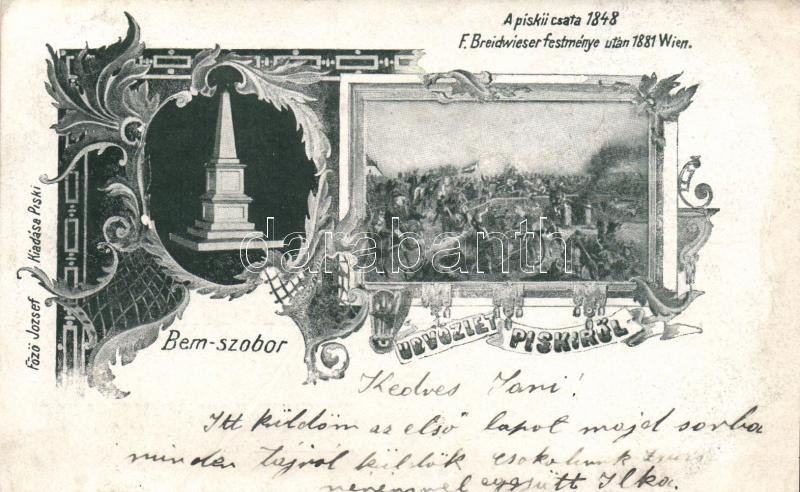 A piskii csata 1848
F. Breidwieser festménye után 1881 Wien.
Főző József Kiadása Piski
darabanth
Bem-szobor
ÜDVÖZLET PISKIRŐL
Kedves Jani!
Itt küldöm az első lapot majd sorba
minden tájról küldök csokolunk
együtt Ilka.